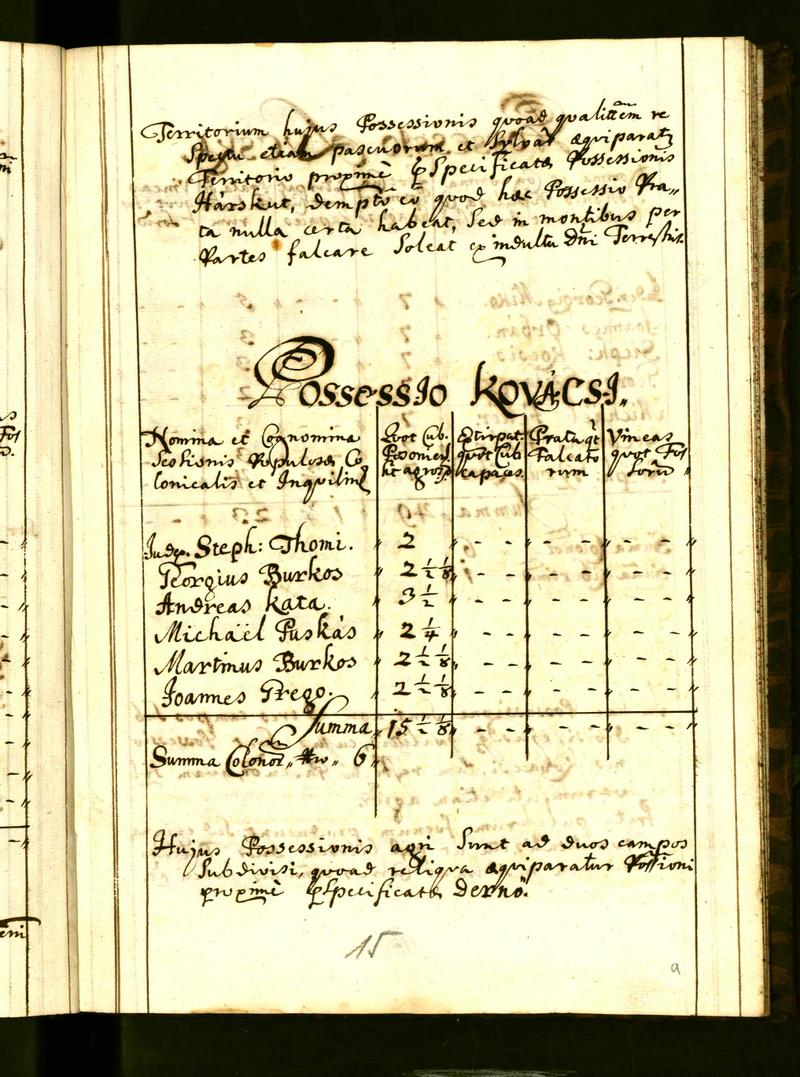 Territorium hujus Possessionis quoad qualitem re
spectu etiam pascuorum et Sylvar æquiparatr
Territorio proxime pspecificatæ Possessionis
Hárskut, dempto eo quod hæc Possessio Pra„
ta nulla certa habeat, Sed in montibus per
Partes falcare Soleat ex indultu Dni Terrestris.
Possessio Kovácsi.
Nomina et Cognomina
Sessionis Populosæ Co
lonicalis et Inquilinæ
Quot Cub.
Posonien.
ht agros
Extirpat.
quot Cub
capaces.
Prata qt
Falcato
rum
Vineas
quot Fos
Sorum
Judex Steph: Thomi. „ 2 „ - - „ - - „ - - „
Georgius Burkos „ 2 ½ ⅛ „ - - „ - - „ - - „
Andreas Kata. „ 3 ½ „ - - „ - - „ - - „
Michaël Puskás „ 2 ¼ „ - - „ - - „ - - „
Martinus Burkos „ 2 ½ ⅛ „ - - „ - - „ - - „
Joannes Grego. „ 2 ½ ⅛ „ - - „ - - „ - - „
Summa „ 15 ½ ⅛ „ - - „ - - „ - - „
Summa Colonor „ „ 6 „
Hujus Possessionis agri Sunt ad duos campos
Subdivisi, quoad reliqua æquiparatur Possioni
proxime pspecificatæ Dernö.
15
a